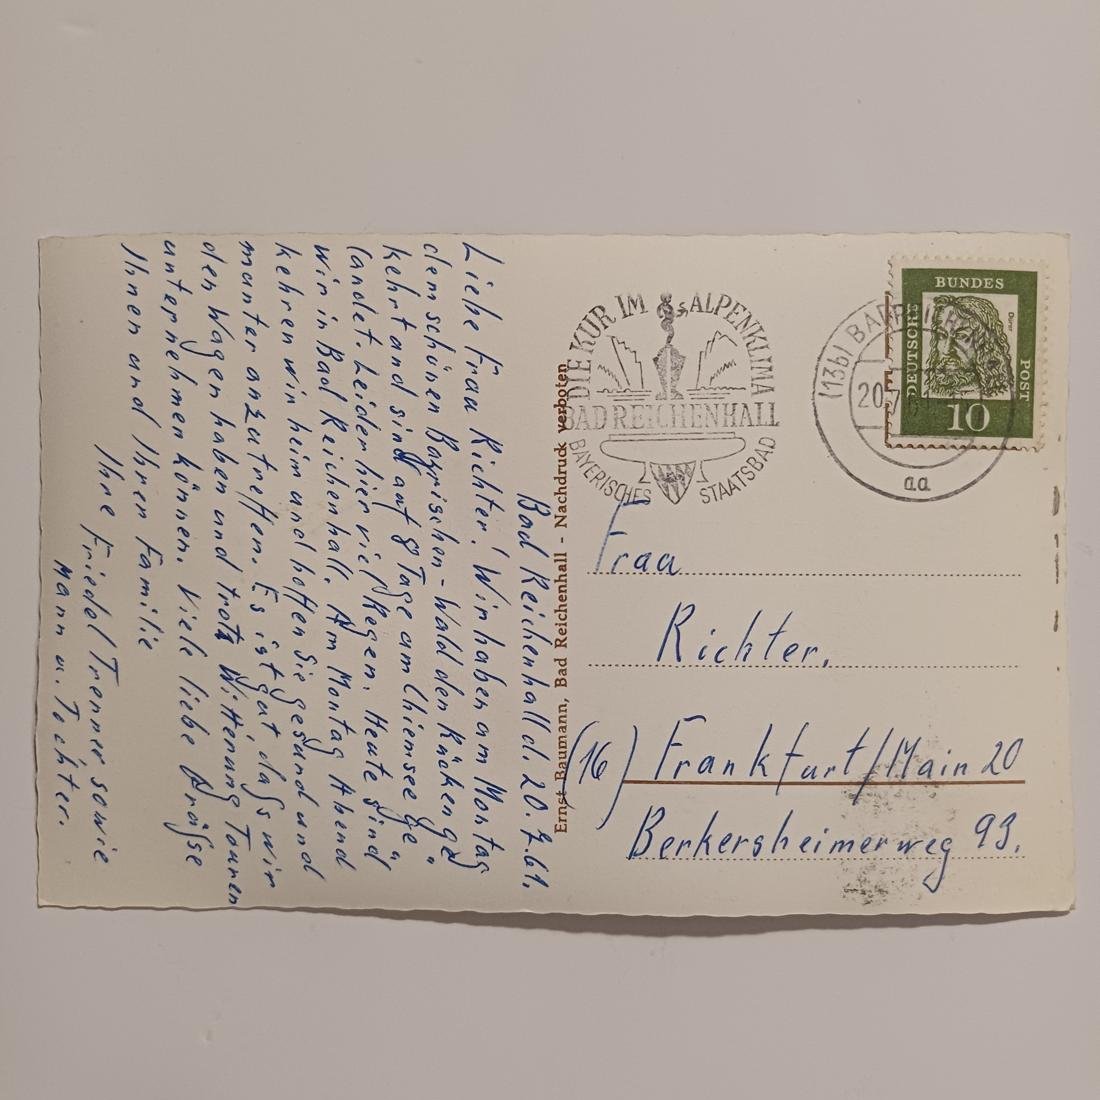 Bad Reichenhall d. 20.7.61.
Liebe Frau Richter! Wir haben am Montag
dem schönen Bayrischen-Wald den Rücken ge"
kehrt und sind auf 8 Tage am Chiemsee ge"
landet. Leider hier viel Regen. Heute sind
wir in Bad Reichenhall. Am Montag Abend
kehren wir heim und hoffen Sie gesund und
munter anzutreffen. Es ist gut dass wir
den Wagen haben und trotz Wittérung Touren
unternehmen können. Viele liebe Grüsse
Ihnen und Ihrer Familie
Ihre Friedel Trenner sowie
Mann u. Tochter.
Ernst Baumann, Bad Reichenhall - Nachdruck verboten
DIE KUR IM ALPENKLIMA
BAD REICHENHALL
BAYERISCHES STAATSBAD
(13b) BAD REICHENHALL
20.7.
aa
DEUTSCHE
BUNDES
POST
Dürer
10
Frau
Richter.
(16) Frankfurt/Main 20
Berkersheimerweg 93.